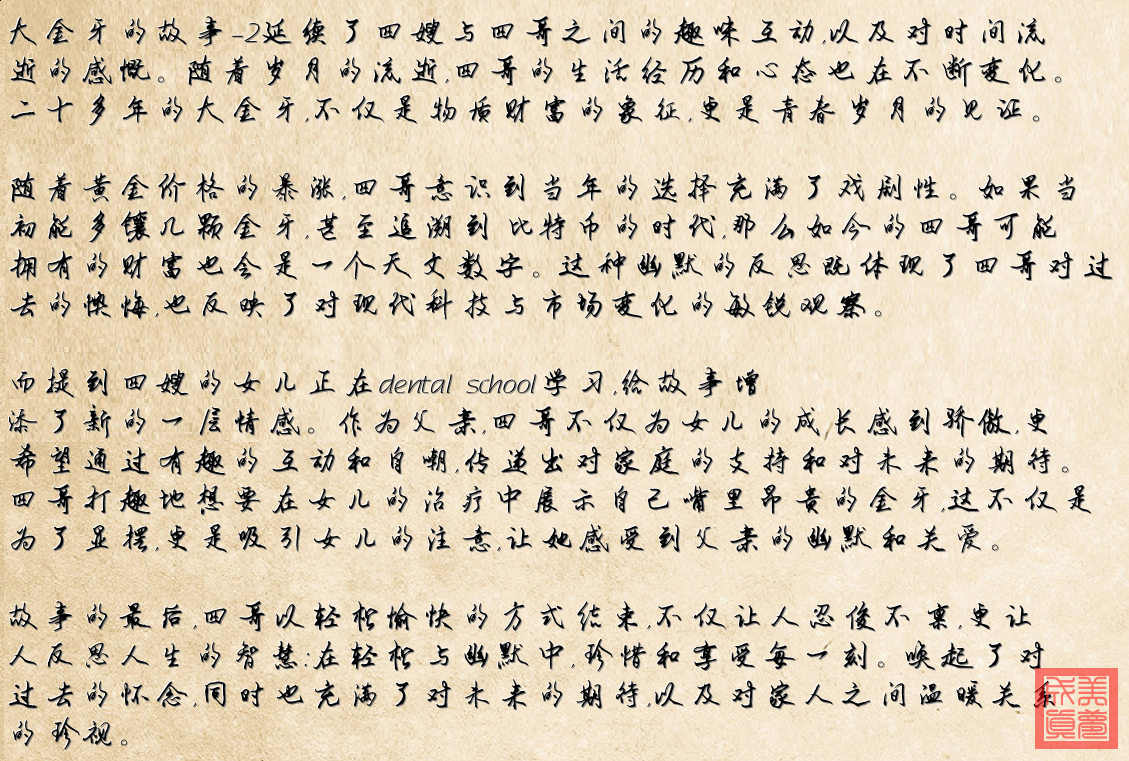 大金牙的故事-2延续了四嫂与四哥之间的趣味互动,以及对时间流
逝的感慨。随着岁月的流逝,四哥的生活经历和心态也在不断变化。
二十多年的大金牙,不仅是物质财富的象征,更是青春岁月的见证。
随着黄金价格的暴涨,四哥意识到当年的选择充满了戏剧性。如果当
初能多镶几颗金牙,甚至追溯到比特币的时代,那么如今的四哥可能
拥有的财富也会是一个天文数字。这种幽默的反思既体现了四哥对过
去的懊悔,也反映了对现代科技与市场变化的敏锐观察。
而提到四嫂的女儿正在dental school学习,给故事增
添了新的一层情感。作为父亲,四哥不仅为女儿的成长感到骄傲,更
希望通过有趣的互动和自嘲,传递出对家庭的支持和对未来的期待。
四哥打趣地想要在女儿的治疗中展示自己嘴里昂贵的金牙,这不仅是
为了显摆,更是吸引女儿的注意,让她感受到父亲的幽默和关爱。
故事的最后,四哥以轻松愉快的方式结束,不仅让人忍俊不禀,更让
人反思人生的智慧:在轻松与幽默中,珍惜和享受每一刻。唤起了对
过去的怀念,同时也充满了对未来的期待,以及对家人之间温暖关系
的珍视。
美梦成真